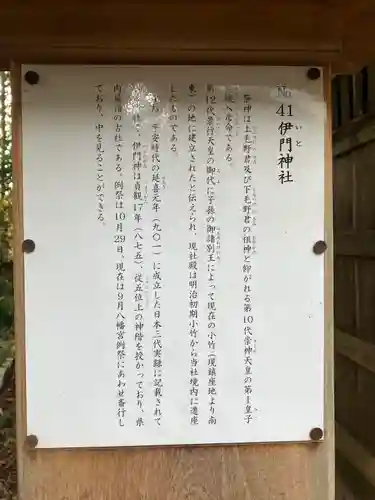 No 41 伊門神社
いと
祭神は上毛野君及び下毛野君の祖神と仰がれる第10代崇神天皇の第1皇子
豊城入彦命である。
第12代景行天皇の御代に子孫の御諸別王によって現在の小竹(現鎮座地より南
東)の地に建立されたと伝えられ、現社殿は明治初期小竹から当社境内に遷座
したものである。
平安時代の延喜元年(九〇一)に成立した日本三代実録に記載されて
伊門神は貞観17年(八七五)、従五位上の神階を授かっており、県
内屈指の古社である。例祭は10月29日、現在は9月八幡宮例祭にあわせ斎行し
ており、中を見ることができる。